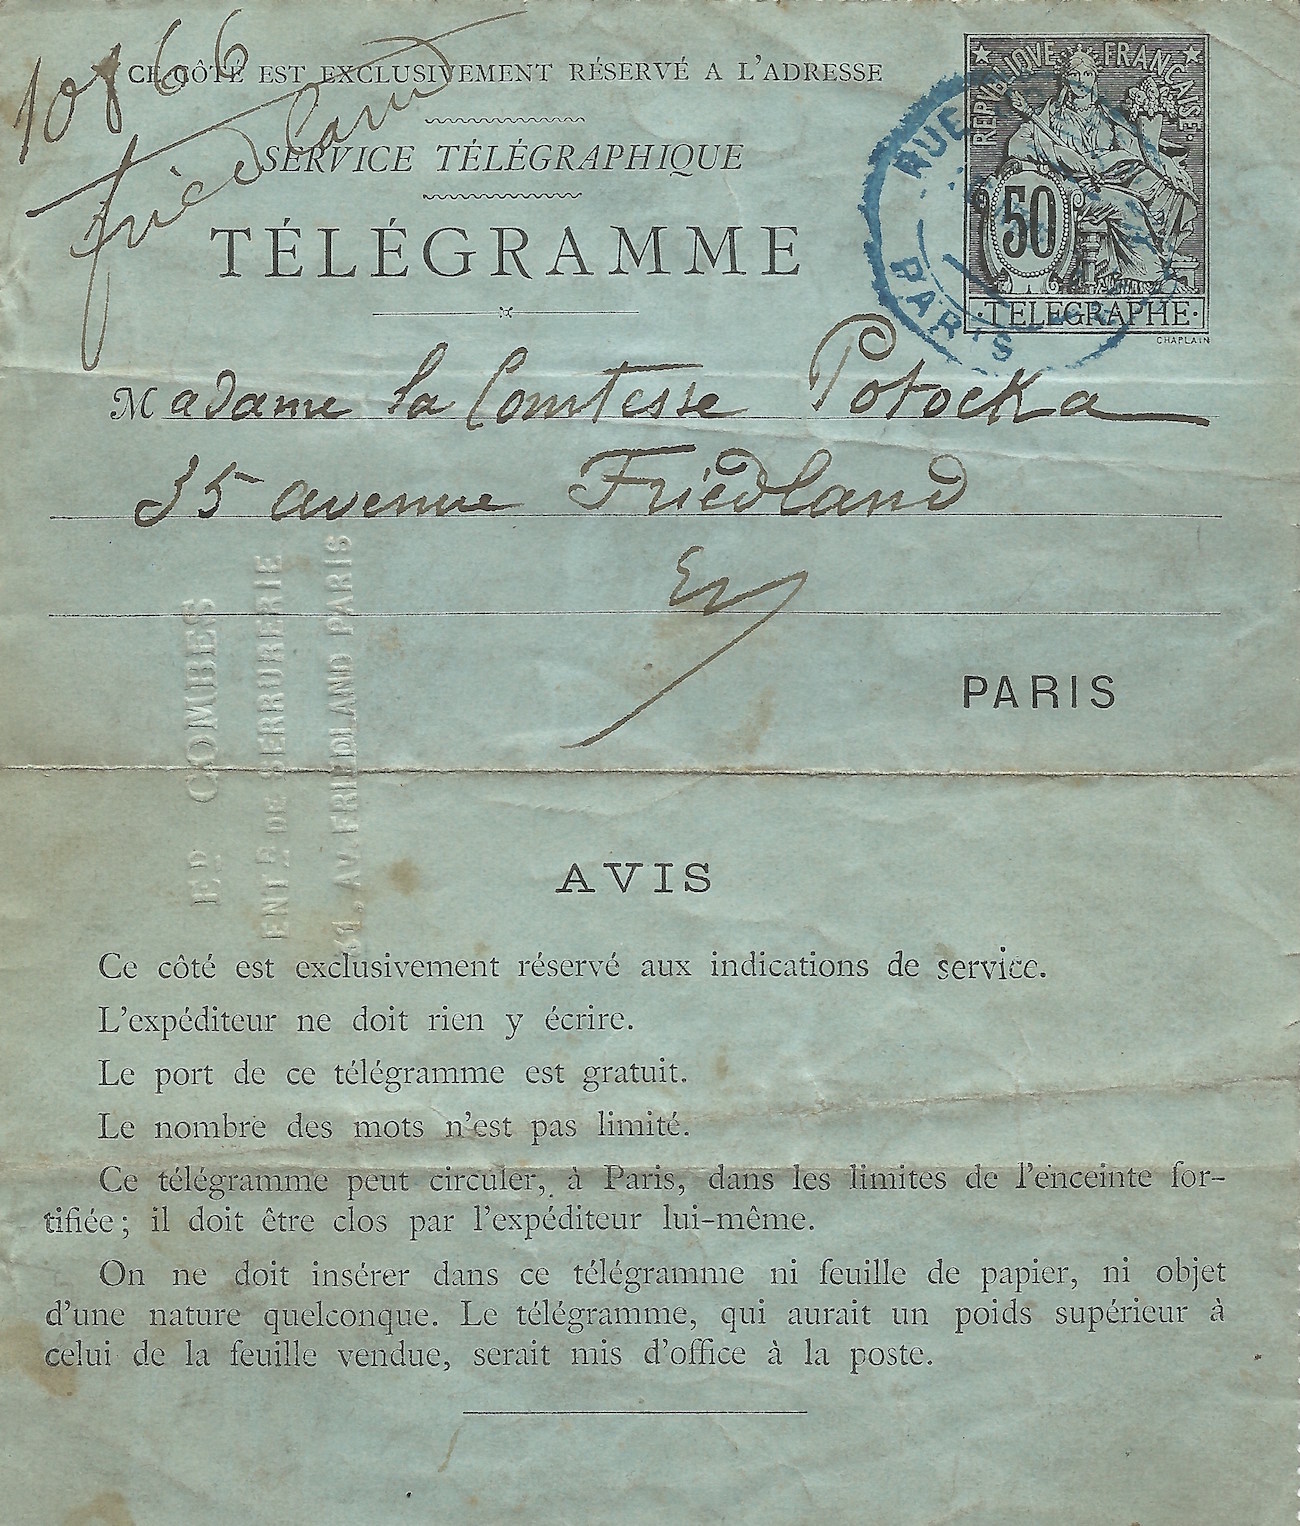 10866
Friedland
CE CÔTÉ EST EXCLUSIVEMENT RÉSERVÉ A L'ADRESSE
SERVICE TÉLÉGRAPHIQUE
TÉLÉGRAMME
REPVBLIQVE FRANÇAISE
50
·TELEGRAPHE·
CHAPLAIN
RUE
PARIS
Madame la Comtesse Potocka
35 avenue Friedland
PARIS
ED COMBES
ENT DE SERRURERIE
31, AV. FRIEDLAND PARIS
AVIS
Ce côté est exclusivement réservé aux indications de service.
L'expéditeur ne doit rien y écrire.
Le port de ce télégramme est gratuit.
Le nombre des mots n'est pas limité.
Ce télégramme peut circuler, à Paris, dans les limites de l'enceinte for-
tifiée; il doit être clos par l'expéditeur lui-même.
On ne doit insérer dans ce télégramme ni feuille de papier, ni objet
d'une nature quelconque. Le télégramme, qui aurait un poids supérieur à
celui de la feuille vendue, serait mis d'office à la poste.